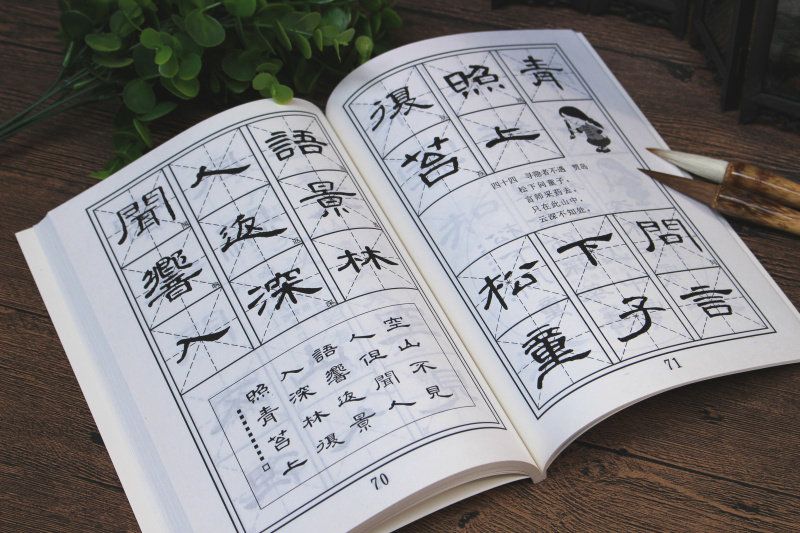 聞人語
響返景
入深林
空山不見
人但聞人
語響返景
入深林復
照青苔上
70
復照青
苔上
四十四 寻隐者不遇 贾岛
松下问童子，
言师采药去。
只在此山中，
云深不知处。
松下問
童子言
71